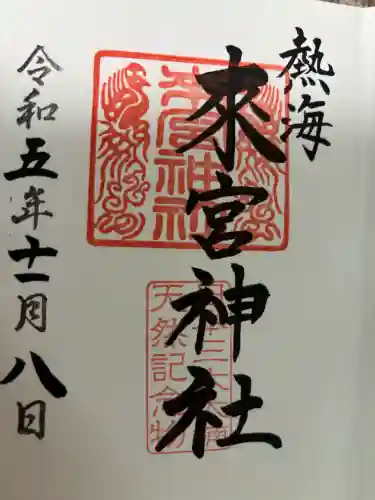 熱海
來宮神社
來宮神社
天然記念物
令和五年十一月八日